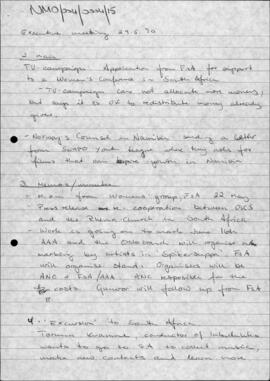 Executive meeting 29.5.90
TV-campaign: Application from FSA for support
to a Women's Conference in South Africa
- TV-campaign can not allocate more money,
but says it is OK to redistribute money already
given.
- Norway's Consul in Namibia sending a letter
from SWAPO Youth League who asks for
films that can youth in Namibia
3.
from Women's group, FSA 22 May
Press release re. cooperation between
and the Church in South Africa
- Work is going on to mark June 16th.
AAA and the Oslo branch will organise a
marking by artists in Spikersuppa. FSA
will organise stand. Organisers will be
ANC + FSA/AAA. ANC responsible for the
costs. Gunvor will follow up from FSA
4. "Excursion" to South Africa
conductor of
wants to go to SA to collect music,
make new contacts and learn more